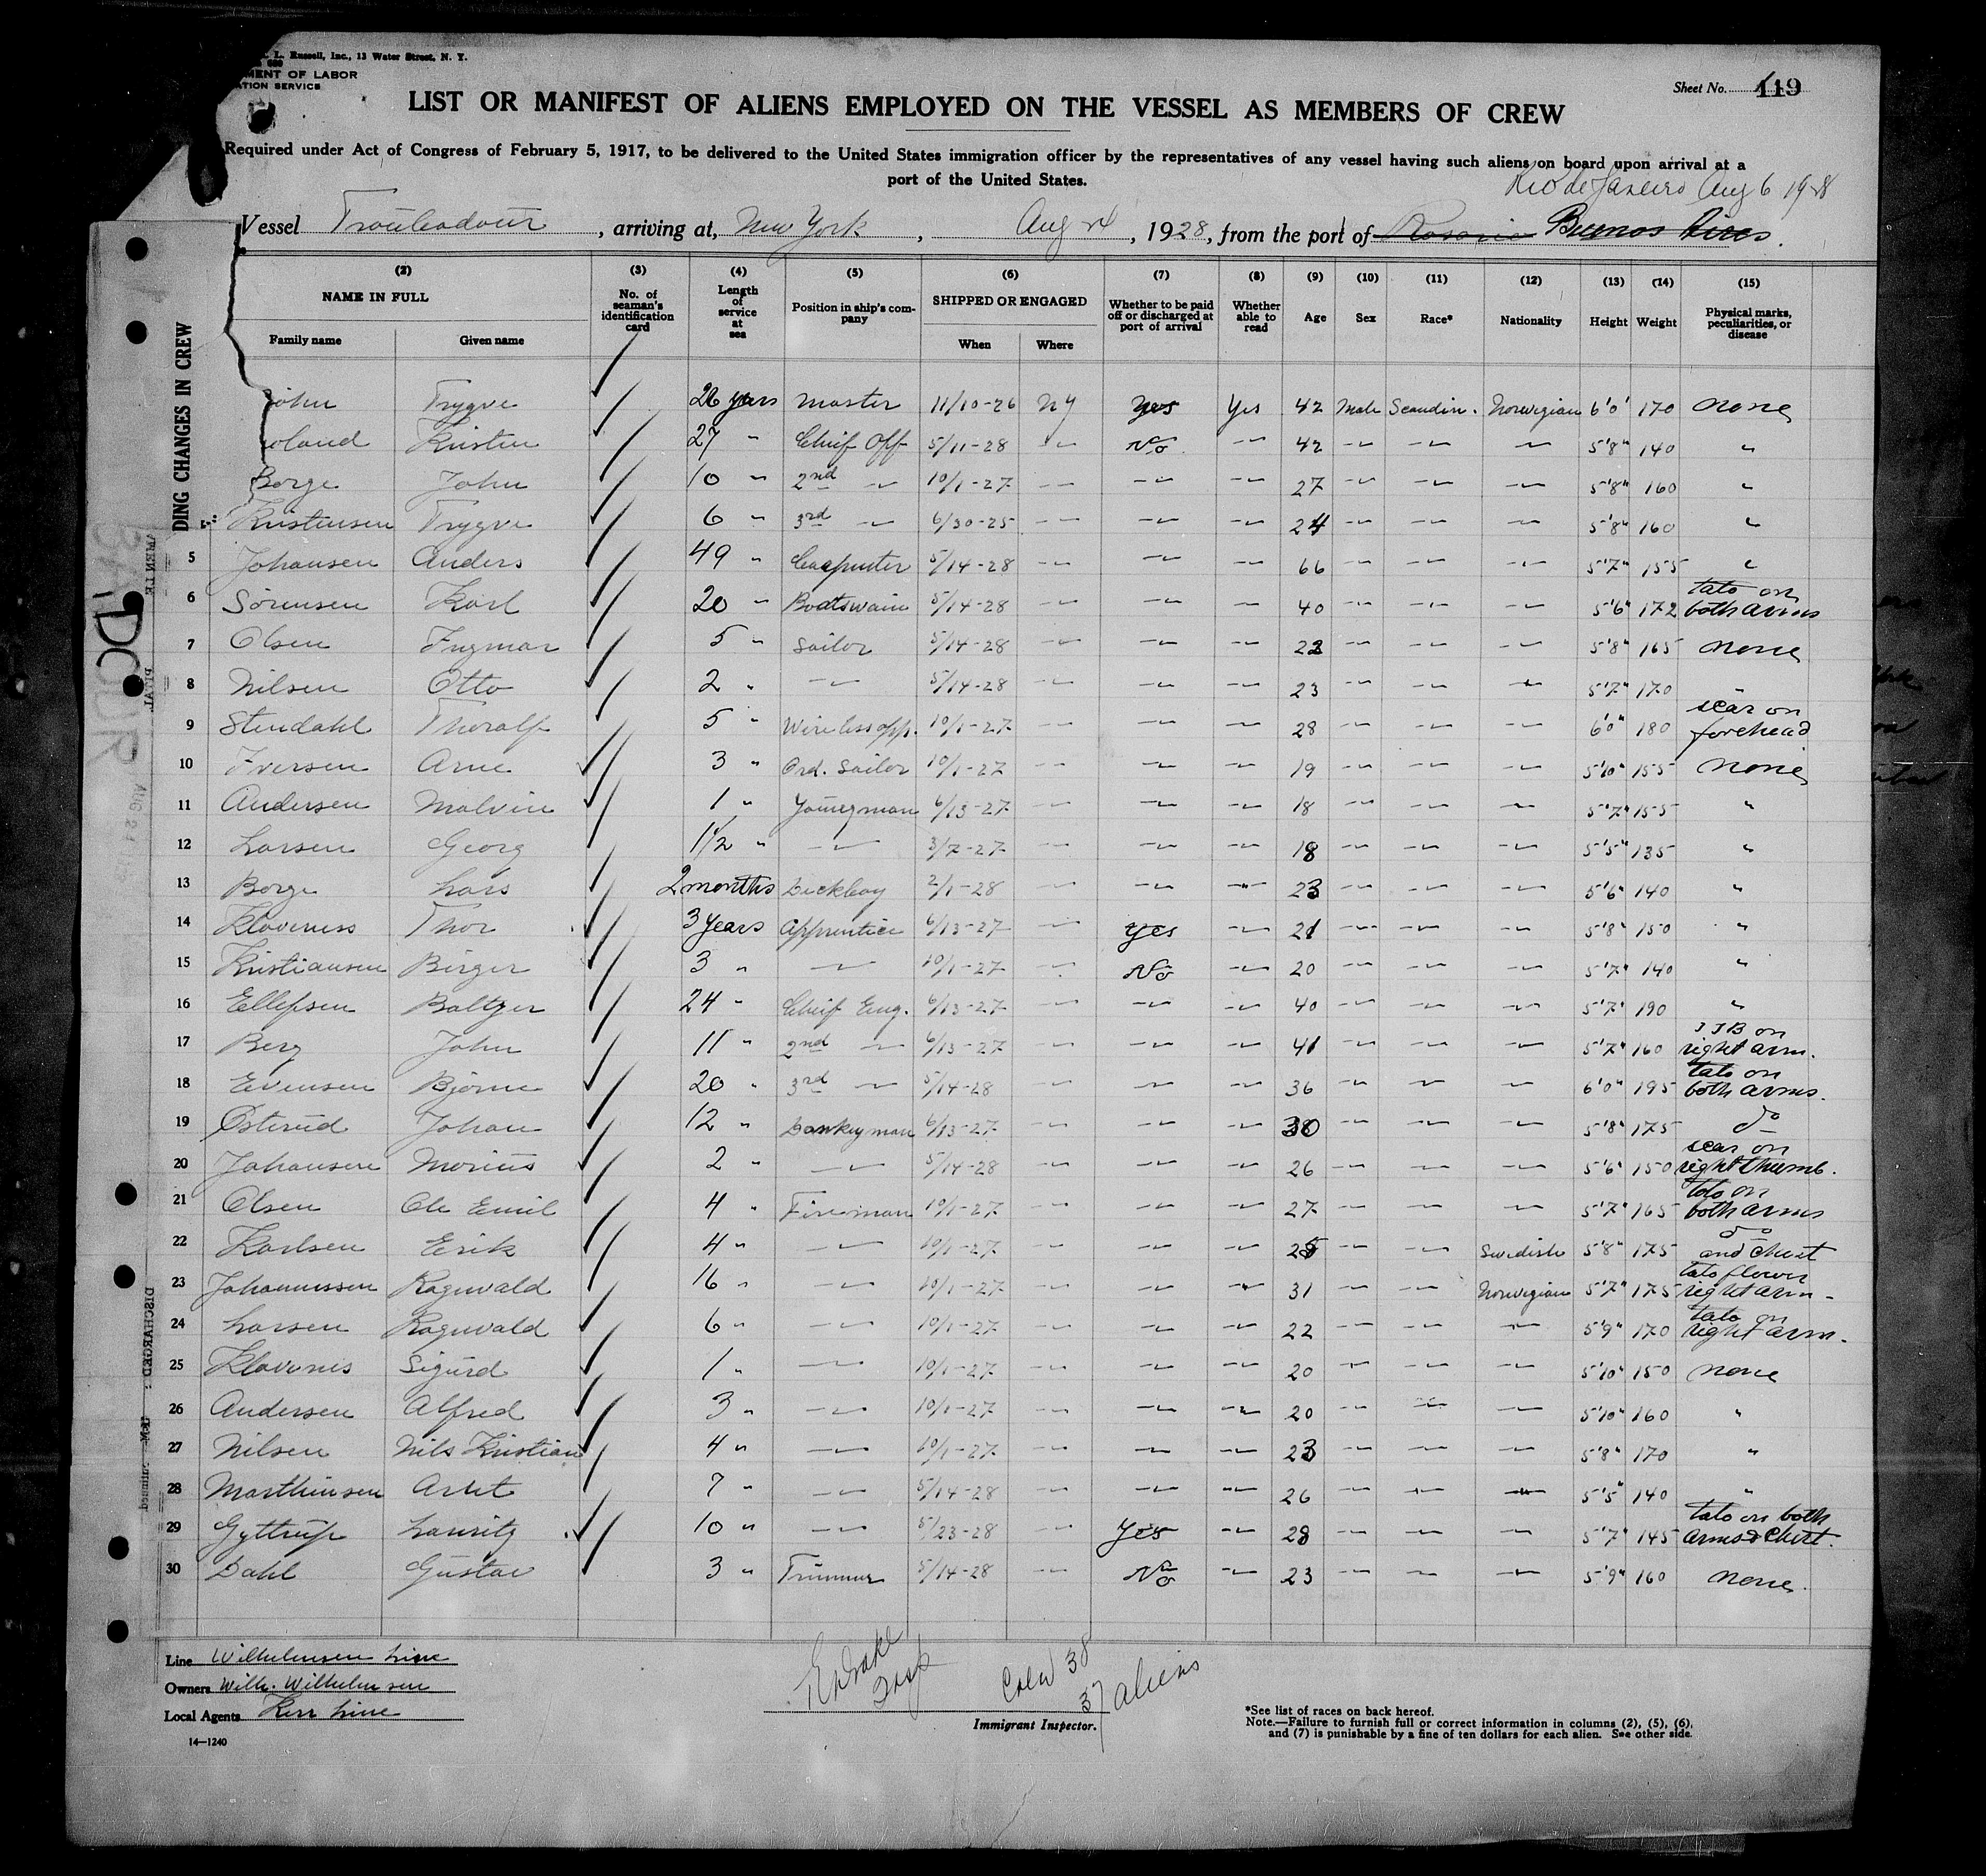 L. Russell, Inc., 13 Water Street, N. Y.
MENT OF LABOR
ATION SERVICE
Sheet No. 119
LIST OR MANIFEST OF ALIENS EMPLOYED ON THE VESSEL AS MEMBERS OF CREW
Required under Act of Congress of February 5, 1917, to be delivered to the United States immigration officer by the representatives of any vessel having such aliens on board upon arrival at a
port of the United States.
Rio de Janeiro Aug 6 1928
Vessel Troubadour, arriving at, New York, Aug 24, 1928, from the port of Rosario Buenos Aires.
(2) (3) (4) (5) (6) (7) (8) (9) (10) (11) (12) (13) (14) (15)
NAME IN FULL No. of seaman's identification card Length of service at sea Position in ship's company SHIPPED OR ENGAGED Whether to be paid off or discharged at port of arrival Whether able to read Age Sex Race* Nationality Height Weight Physical marks, peculiarities, or disease
Family name Given name When Where
DING CHANGES IN CREW
Trygve 26 years Master 11/10-26 NY Yes Yes 42 Male Scandin. Norwegian 6'0" 170 none
Kristen 27 " Chief Off 5/11-28 — No — 42 — — — 5'8" 140 "
Borge John 10 " 2nd — 10/1-27 — — — 27 — — — 5'8" 160 "
Kristensen Trygve 6 " 3rd — 6/30-25 — — — 24 — — — 5'8" 160 "
5 Johansen Anders 49 " Carpenter 5/14-28 — — — 66 — — — 5'7" 155 "
6 Sørensen Karl 20 " Boatswain 5/14-28 — — — 40 — — — 5'6" 172 tato on both arms
7 Olsen Ingmar 5 " Sailor 5/14-28 — — — 22 — — — 5'8" 165 none
8 Nilsen Otto 2 " — 5/14-28 — — — 23 — — — 5'7" 170 "
9 Stendahl Thoralf 5 " Wireless opp. 10/1-27 — — — 28 — — — 6'0" 180 scar on forehead
10 Iversen Arne 3 " Ord. Sailor 10/1-27 — — — 19 — — — 5'10" 155 none
11 Andersen Malvin 1 " Youngman 6/13-27 — — — 18 — — — 5'7" 155 "
12 Larsen Georg 1 1/2 " — 3/7-27 — — — 18 — — — 5'5" 135 "
13 Borge Lars 2 months Deckboy 2/1-28 — — — 23 — — — 5'6" 140 "
14 Klaveness Thor 3 years Apprentice 6/13-27 — Yes — 21 — — — 5'8" 150 "
15 Kristiansen Birger 3 " — 10/1-27 — No — 20 — — — 5'7" 140 "
16 Ellefsen Baltzer 24 " Chief Eng. 6/13-27 — — — 40 — — — 5'7" 190 "
17 Berg John 11 " 2nd — 6/13-27 — — — 41 — — — 5'7" 160 JJB on right arm.
18 Evensen Bjørne 20 " 3rd — 5/14-28 — — — 36 — — — 6'0" 195 tato on both arms.
19 Østerud Johan 12 " Donkeyman 6/13-27 — — — 30 — — — 5'8" 175 do
20 Johansen Marius 2 " — 5/14-28 — — — 26 — — — 5'6" 150 scar on right thumb.
21 Olsen Ole Emil 4 " Fireman 10/1-27 — — — 27 — — — 5'7" 165 tato on both arms
22 Karlsen Erik 4 " — 10/1-27 — — — 25 — — Swedish 5'8" 175 do and chest
23 Johannessen Ragnvald 16 " — 10/1-27 — — — 31 — — Norwegian 5'7" 175 tato flower right arm
24 Larsen Ragnvald 6 " — 10/1-27 — — — 22 — — — 5'9" 170 tato on right arm.
25 Klavenes Sigurd 1 " — 10/1-27 — — — 20 — — — 5'10" 150 none
26 Andersen Alfred 3 " — 10/1-27 — — — 20 — — — 5'10" 160 "
27 Nilsen Nils Kristian 4 " — 10/1-27 — — — 23 — — — 5'8" 170 "
28 Marthinsen Arnt 7 " — 5/14-28 — — — 26 — — — 5'5" 140 "
29 Gyttrup Lauritz 10 " — 5/23-28 — Yes — 28 — — — 5'7" 145 tato on both arms & chest.
30 Dahl Gustav 3 " Trimmer 5/14-28 — No — 23 — — — 5'9" 160 none.
Line Wilhelmsen Line
Owners Wilh. Wilhelmsen
Local Agents Kerr Line
14—1240
Crew 38
37 aliens
Immigrant Inspector.
*See list of races on back hereof.
Note.—Failure to furnish full or correct information in columns (2), (5), (6),
and (7) is punishable by a fine of ten dollars for each alien. See other side.